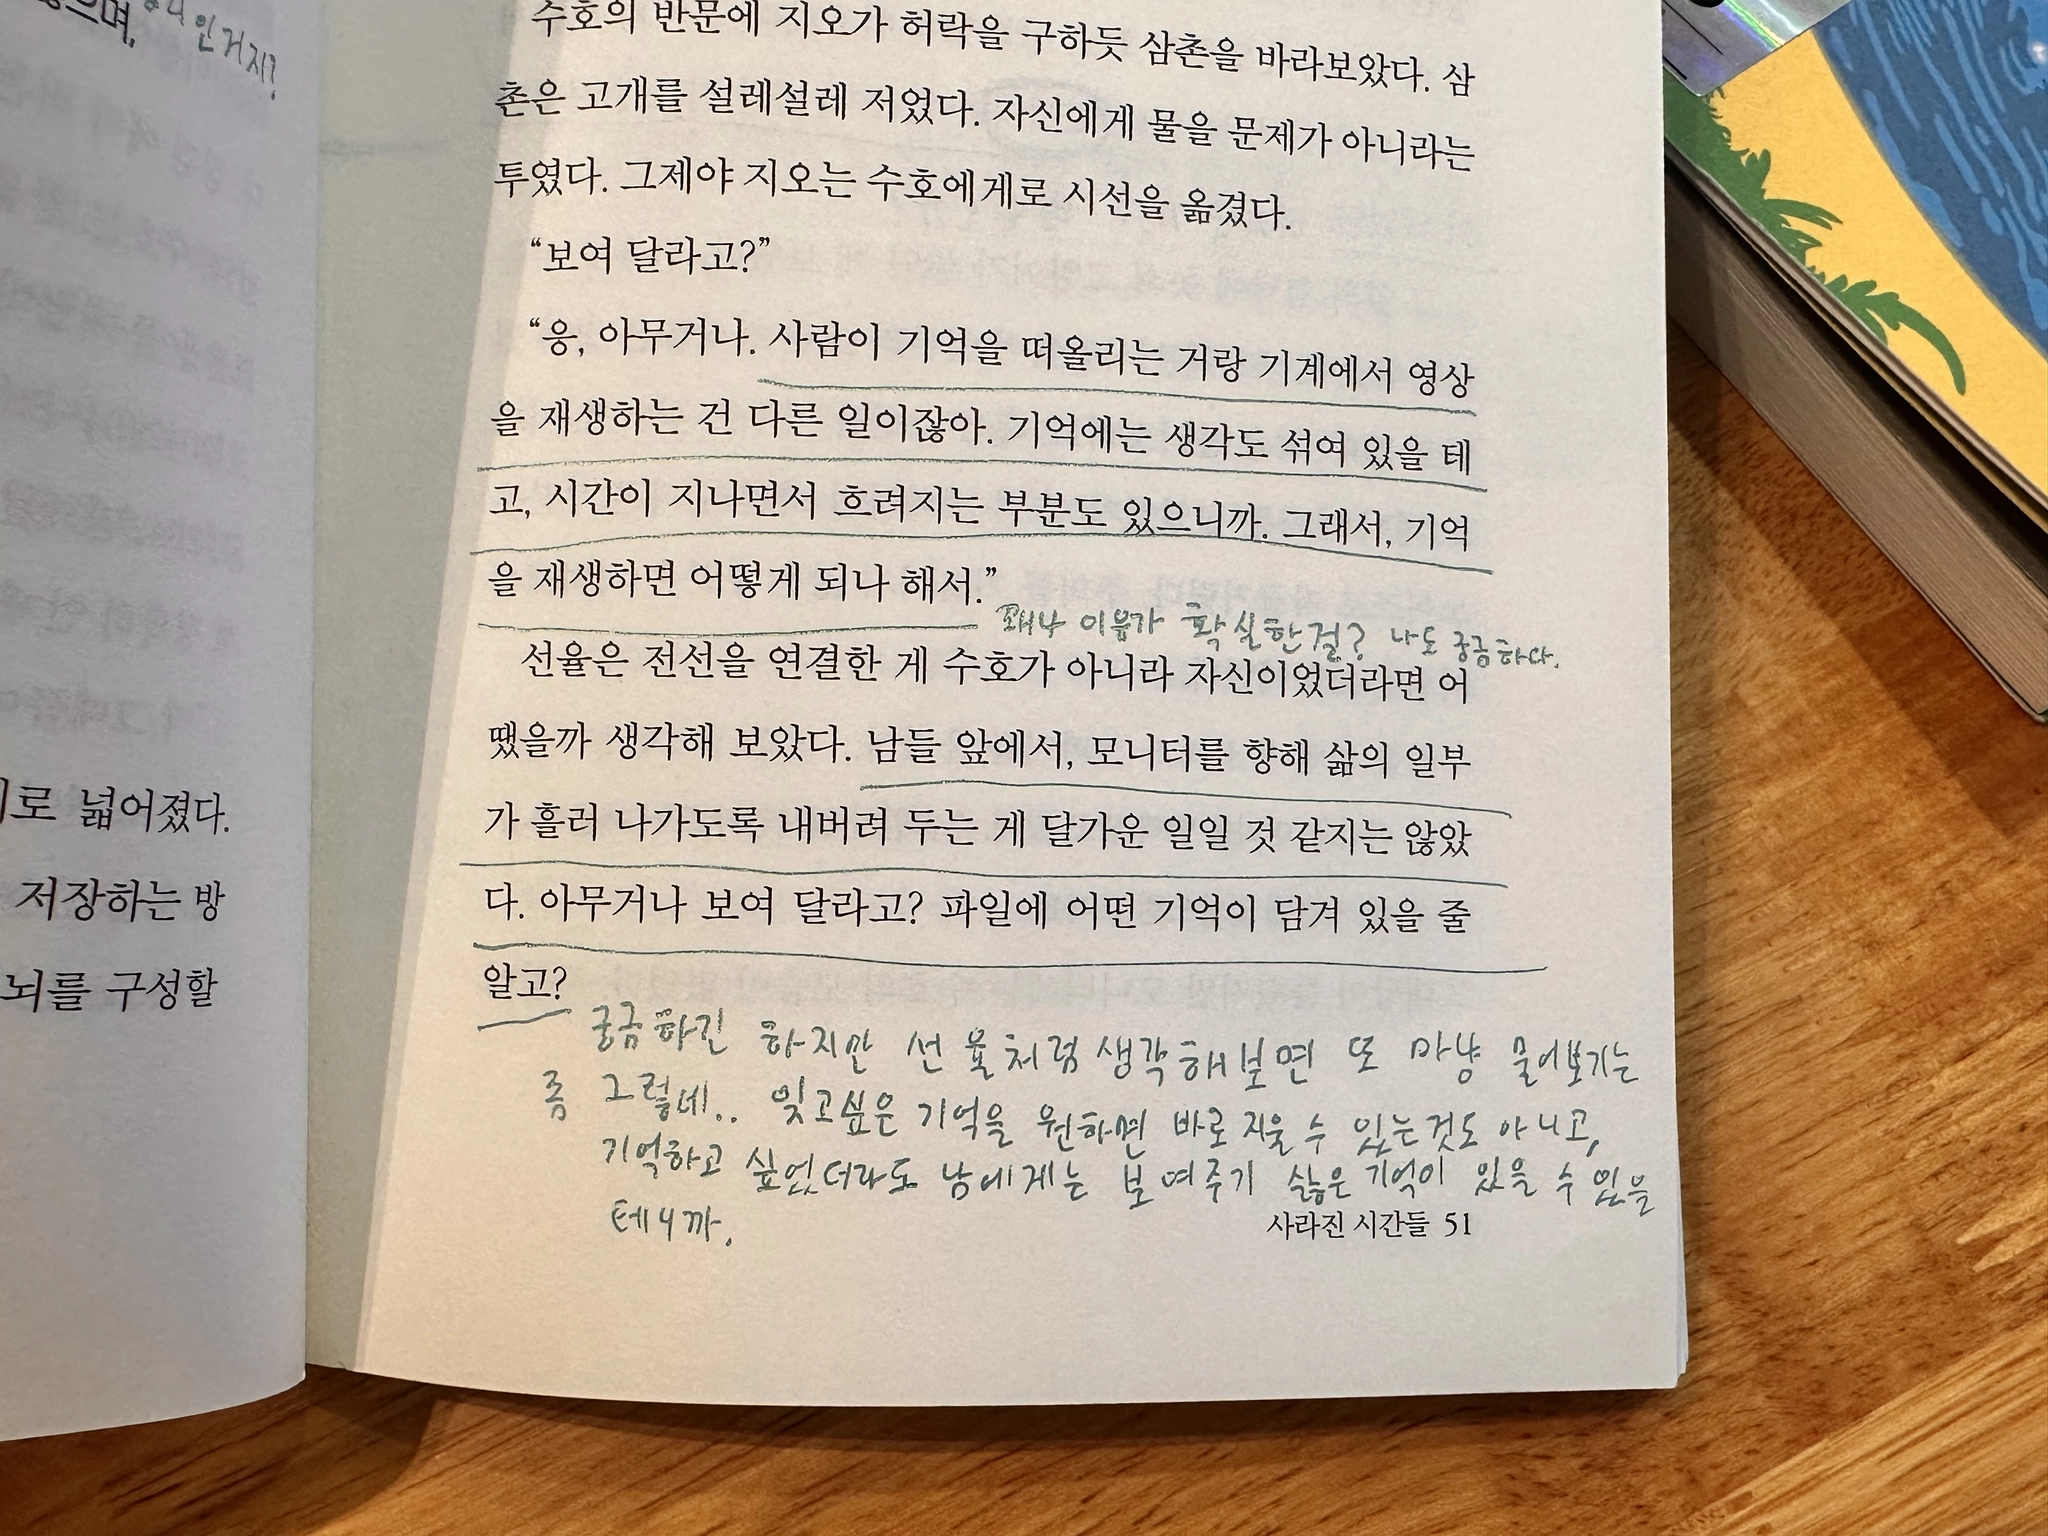 인거지?
로 넓어졌다.
저장하는 방
뇌를 구성할
수호의 반문에 지오가 허락을 구하듯 삼촌을 바라보았다. 삼
촌은 고개를 설레설레 저었다. 자신에게 물을 문제가 아니라는
투였다. 그제야 지오는 수호에게로 시선을 옮겼다.
“보여 달라고?”
“응, 아무거나. 사람이 기억을 떠올리는 거랑 기계에서 영상
을 재생하는 건 다른 일이잖아. 기억에는 생각도 섞여 있을 테
고, 시간이 지나면서 흐려지는 부분도 있으니까. 그래서, 기억
을 재생하면 어떻게 되나 해서.”
꽤나 이유가 확실한걸? 나도 궁금하다.
선율은 전선을 연결한 게 수호가 아니라 자신이었더라면 어
땠을까 생각해 보았다. 남들 앞에서, 모니터를 향해 삶의 일부
가 흘러 나가도록 내버려 두는 게 달가운 일일 것 같지는 않았
다. 아무거나 보여 달라고? 파일에 어떤 기억이 담겨 있을 줄
알고?
궁금하긴 하지만 선율처럼 생각해보면 또 마냥 물어보기는
좀 그렇네.. 잊고싶은 기억을 원하면 바로 지울 수 있는것도 아니고,
기억하고 싶었더라도 남에게는 보여주기 싫은 기억이 있을 수 있을
테니까.
사라진 시간들 51